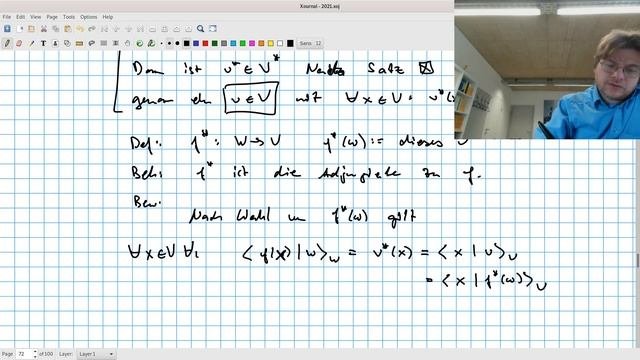 Xournal - 2021.xoj
File Edit View Page Tools Help
Sans 12
Dann ist v* ∈ V* Nach Satz ⊠
genau ein v ∈ V mit ∀ x ∈ V: v*(x
Def: f*: W → V f*(w) := dieses v
Beh: f* ist die Adjungierte zu f.
Bew:
Nach Wahl von f*(w) gilt
∀ x ∈ V ∀ ⟨ f(x) | w ⟩_W = v*(x) = ⟨ x | v ⟩_V
= ⟨ x | f*(w) ⟩_V
Page 72 of 100 Layer: Layer 1